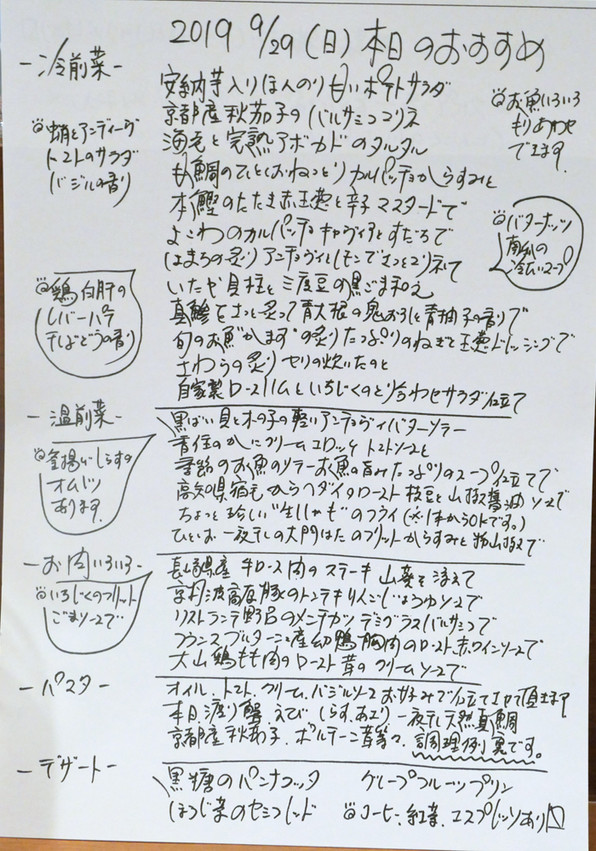 2019 9/29(日)本日のおすすめ
-冷前菜-
安納芋入りほんのり甘いポテトサラダ
京都産秋茄子のバルサミコマリネ
海老と完熟アボカドのタルタル
鯛のひとしおねっとりカルパッチョからすみと
本鰹のたたき赤玉葱と辛子マスタードで
よこわのカルパッチョキャヴィアとすだちで
はまちの炙りアンチョヴィとレモンでさっと
いたや貝柱と三度豆の黒ごま和え
真鯵をさっと炙って青大根の鬼おろしと青柚子の香りで
旬のお魚"かます"の炙りたっぷりのねぎと玉葱ドレッシングで
さわらの炙りセリの炊いたのと
自家製ロースハムといちじくのとり合わせサラダ仕立て
蛸とアンディーブ
トマトのサラダ
バジルの香り
お魚いろいろ
もりあわせ
できます。
バターナッツ
南瓜の
冷たいスープ
鶏白肝の
レバーパテ
干しぶどうの香り
-温前菜-
黒ばい貝と木の子の軽いアンチョヴィバターソテー
香住のかにクリームコロッケトマトソースと
季節のお魚のソテーお魚の旨みたっぷりのスープ仕立てで
高知県宿毛からヘダイのロースト枝豆と山椒醤油ソースで
ちょっと珍しい"生ししゃも"のフライ(※1本からOKです。)
ひとしお一夜干しの大門はたのフリットからすみと粉山椒で
釜揚げしらすの
オムレツ
あります。
-お肉いろいろ-
長崎県産牛ロース肉のステーキ山葵を添えて
京丹波高原豚のトンテキりんごじょうゆソースで
リストランテ野呂のメンチカツデミグラスバルサミコで
フランスブルターニュ産幼鴨胸肉のロースト赤ワインソースで
大山鶏もも肉のロースト茸のクリームソースで
いちじくのフリット
ごまソースで
-パスタ-
オイル.トマト.クリーム.バジルソースお好みで仕立てさせて頂きます
本日、渡り蟹.えび.しらす.あさり.一夜干し天然真鯛
京都産秋茄子.ポルチーニ茸等々.調理例裏です。
-デザート-
黒糖のパンナコッタ グレープフルーツプリン
ほうじ茶のセミフレッド コーヒー.紅茶.エスプレッソあり